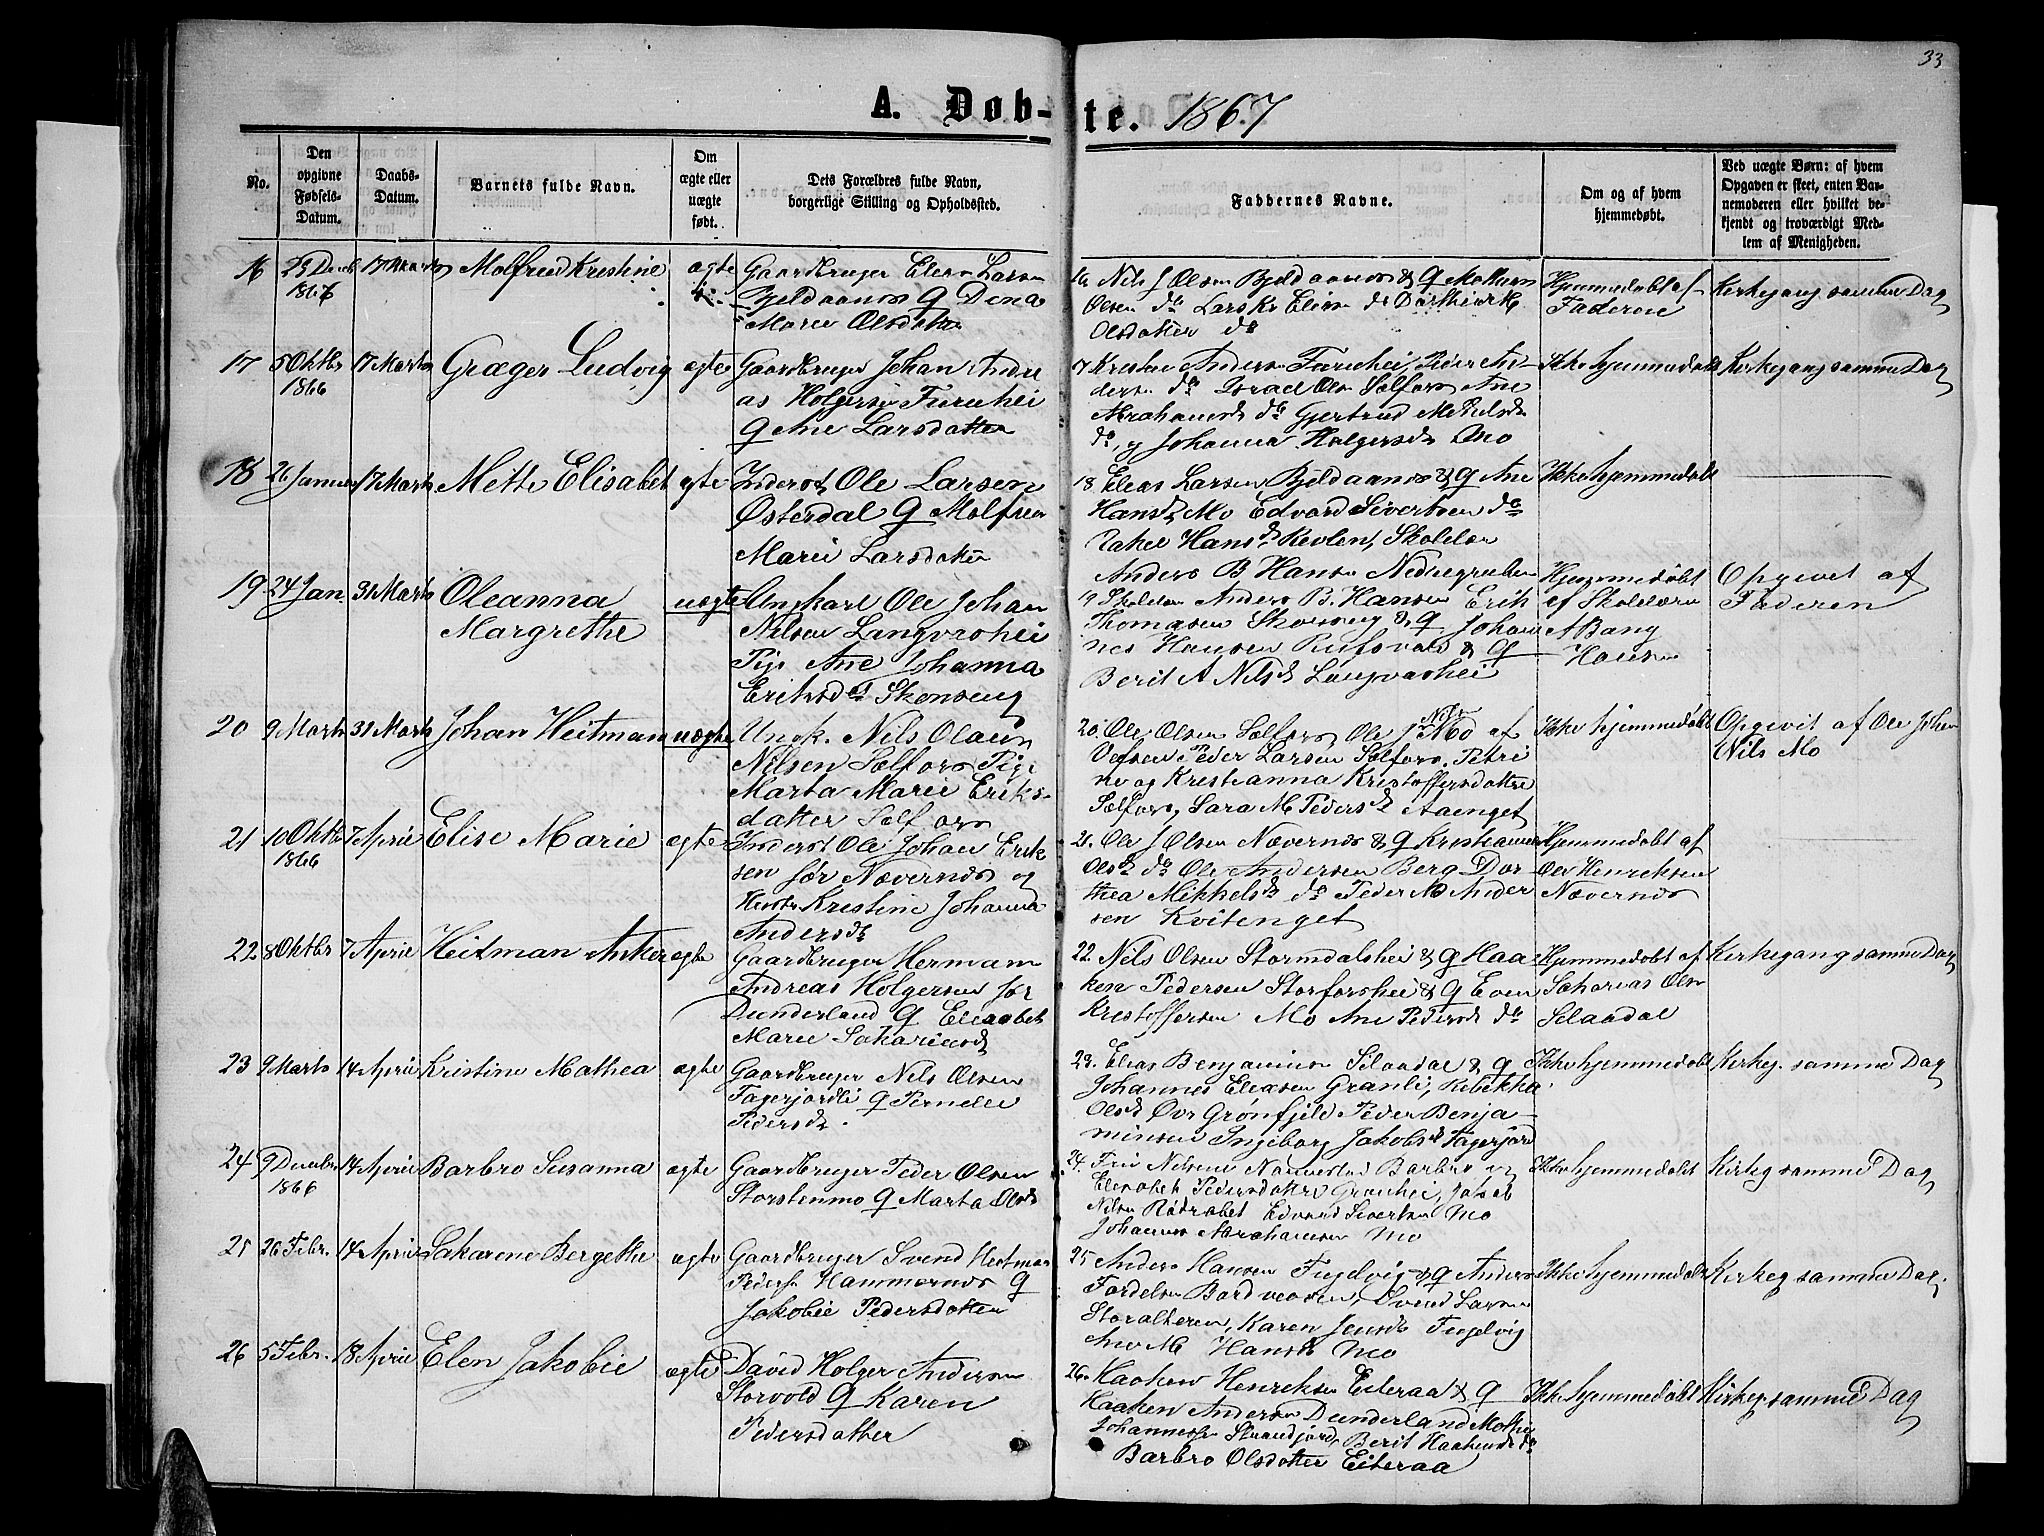 33
A. Døb-te. 1867
No.
Den
opgivne
Fødsels-
Datum.
Daabs-
Datum.
Barnets fulde Navn.
Om
ægte eller
uægte
født.
Dets Forældres fulde Navn,
borgerlige Stilling og Opholdssted.
Faddernes Navne.
Om og af hvem
hjemmedøbt.
Ved uægte Børn: af hvem
Opgaven er skeet, enten Bar-
nemoderen eller hvilket be-
kjendt og troværdigt Med-
lem af Menigheden.
16 29 Decb 17 Marts Molfred Kristine ægte Gaardbruger Elias Larsen
1866
Bjeldaanes & Dina
Marie Olsdatter
16 Nils J Olsen Bjeldaanes & Q
Olsen do Lars Ks Elias do
Olsdatter do
Hjemmedøbt af
Faderen
Kirkegang samme Dag
17 5 Oktbr 17 Marts Græger Ludvig ægte Gaardbruger Johan Andre
1866
as Holgersen Furuhei
Q Ane Larsdatter
17 Andersen Furuhei, Peder An-
dersen do Israel Olsen Selfors Ane
Abrahamsd do Gjertrud M
do, og Johanna Holgersd Mo
Ikke hjemmedøbt Kirkegang samme Dag
18 26 Januar 17 Marts Mette Elisabet ægte Inderst Ole Larsen
Østerdal Q Molfred
Marie Larsdatter
18. Elias Larsen Bjeldaanes & Q Ane
Hansd Mo Edvard Sivertsen do
Rakel Hansd Revlen, Skolelær
Anders B Hansen
Ikke hjemmedøbt
19 24 Jan. 31 Marts Oleanna
Margrethe
uægte Ungkarl Ole Johan
Nilsen Langvashei
Pige Ane Johanna
Eriksd Skonseng
19 Skolelær Anders B. Hansen Erik
Thomasen Skonseng & Q Johan
nes Hansen Rufsvold & Q
Berit A Nilsd Langvashei
Hjemmedøbt
af Skolelærer
A Bang
Hansen
Opgivet af
Faderen
20 9 Marts 31 Marts Johan Heitman uægte Ungk. Nils Olaus
Nilsen Selfors Pige
Marta Marie Eriks-
datter Selfors
20. Ole Olsen Selfors, Ole J Nilsen Mo af
Vefsen Peder Larsen Selfors. Petri
ne og Kristianna Kristoffersdatter
Selfors, Sara M Pedersd Aaenget
Ikke hjemmedøbt Opgivet af Ole Johan
Nils Mo
21 10 Oktbr 7 April Elise Marie ægte Inderst Ole Johan Erik
1866
sen Sør Nævernes og
Hustru Kristine Johanna
Andersd
21. Ole J Olsen Nævernes & Q Kristianna
Olsd do Ole Andersen Berg Dor
thea Mikkelsd do Peder N Ander
sen Kvitenget
Hjemmedøbt af
Ole Henriksen
Nævernes
22 8 Oktbr 7 April Heitman Anker ægte Gaardbruger Hermann
Andreas Holgersen Sør
Dunderland Q Elisabet
Marie Sakariasd
22. Nils Olsen Stormdalshei & Q Haa-
ken Pedersen Storforshei & Q Even
Kristoffersen Mo Ane Pedersd do
Hjemmedøbt af
Sakarias Olsen
Selaadal
Kirkegang samme Dag
23 9 Marts 14 April Kristine Mathea ægte Gaardbruger Nils Olsen
Fagerjordli Q Pernelle
Pedersd.
23. Elias Benjaminsen Selaadal & Q
Johannes Eliasen Granli, Rebekka
Olsd Øvr Grønfjeld Peder Benja-
minsen Ingeborg Jakobsd Fagerjord
Ikke hjemmedøbt Kirkeg. samme Dag
24 9 Decbr 14 April Barbro Susanna ægte Gaardbruger Peder Olsen
1866
Storstenmo Q Marta Olsd
24. Nilsen Barbro og
Elisabet Pedersdatter Grønhei, Jakob
Nilsen Edvard Sivertsen Mo
Johannes Abrahamsen Mo
Ikke hjemmedøbt Kirkeg samme Dag
25 26 Febr. 14 April Sakarine Bergethe ægte Gaardbruger Svend Heitman
Peders. Hammernes Q
Jakobie Pedersdatter
25 Anders Hansen Fugelvig & Q Anders
Fordelsen Svend Larsen
Storalteren, Karen Jensd Fugelvig
M Hansd Mo
Ikke hjemmedøbt Kirkeg samme Dag.
26 5 Febr. 18 April Elen Jakobie ægte David Holger Andersen
Storvold Q Karen
Pedersdatter
26. Henriksen Eiteraa & Q
Haaken Andersen Dunderland
Johannessen Strandjord, Berit Haakensd do
Barbro Olsdatter Eiteraa
Ikke hjemmedøbt Kirkeg samme Dag